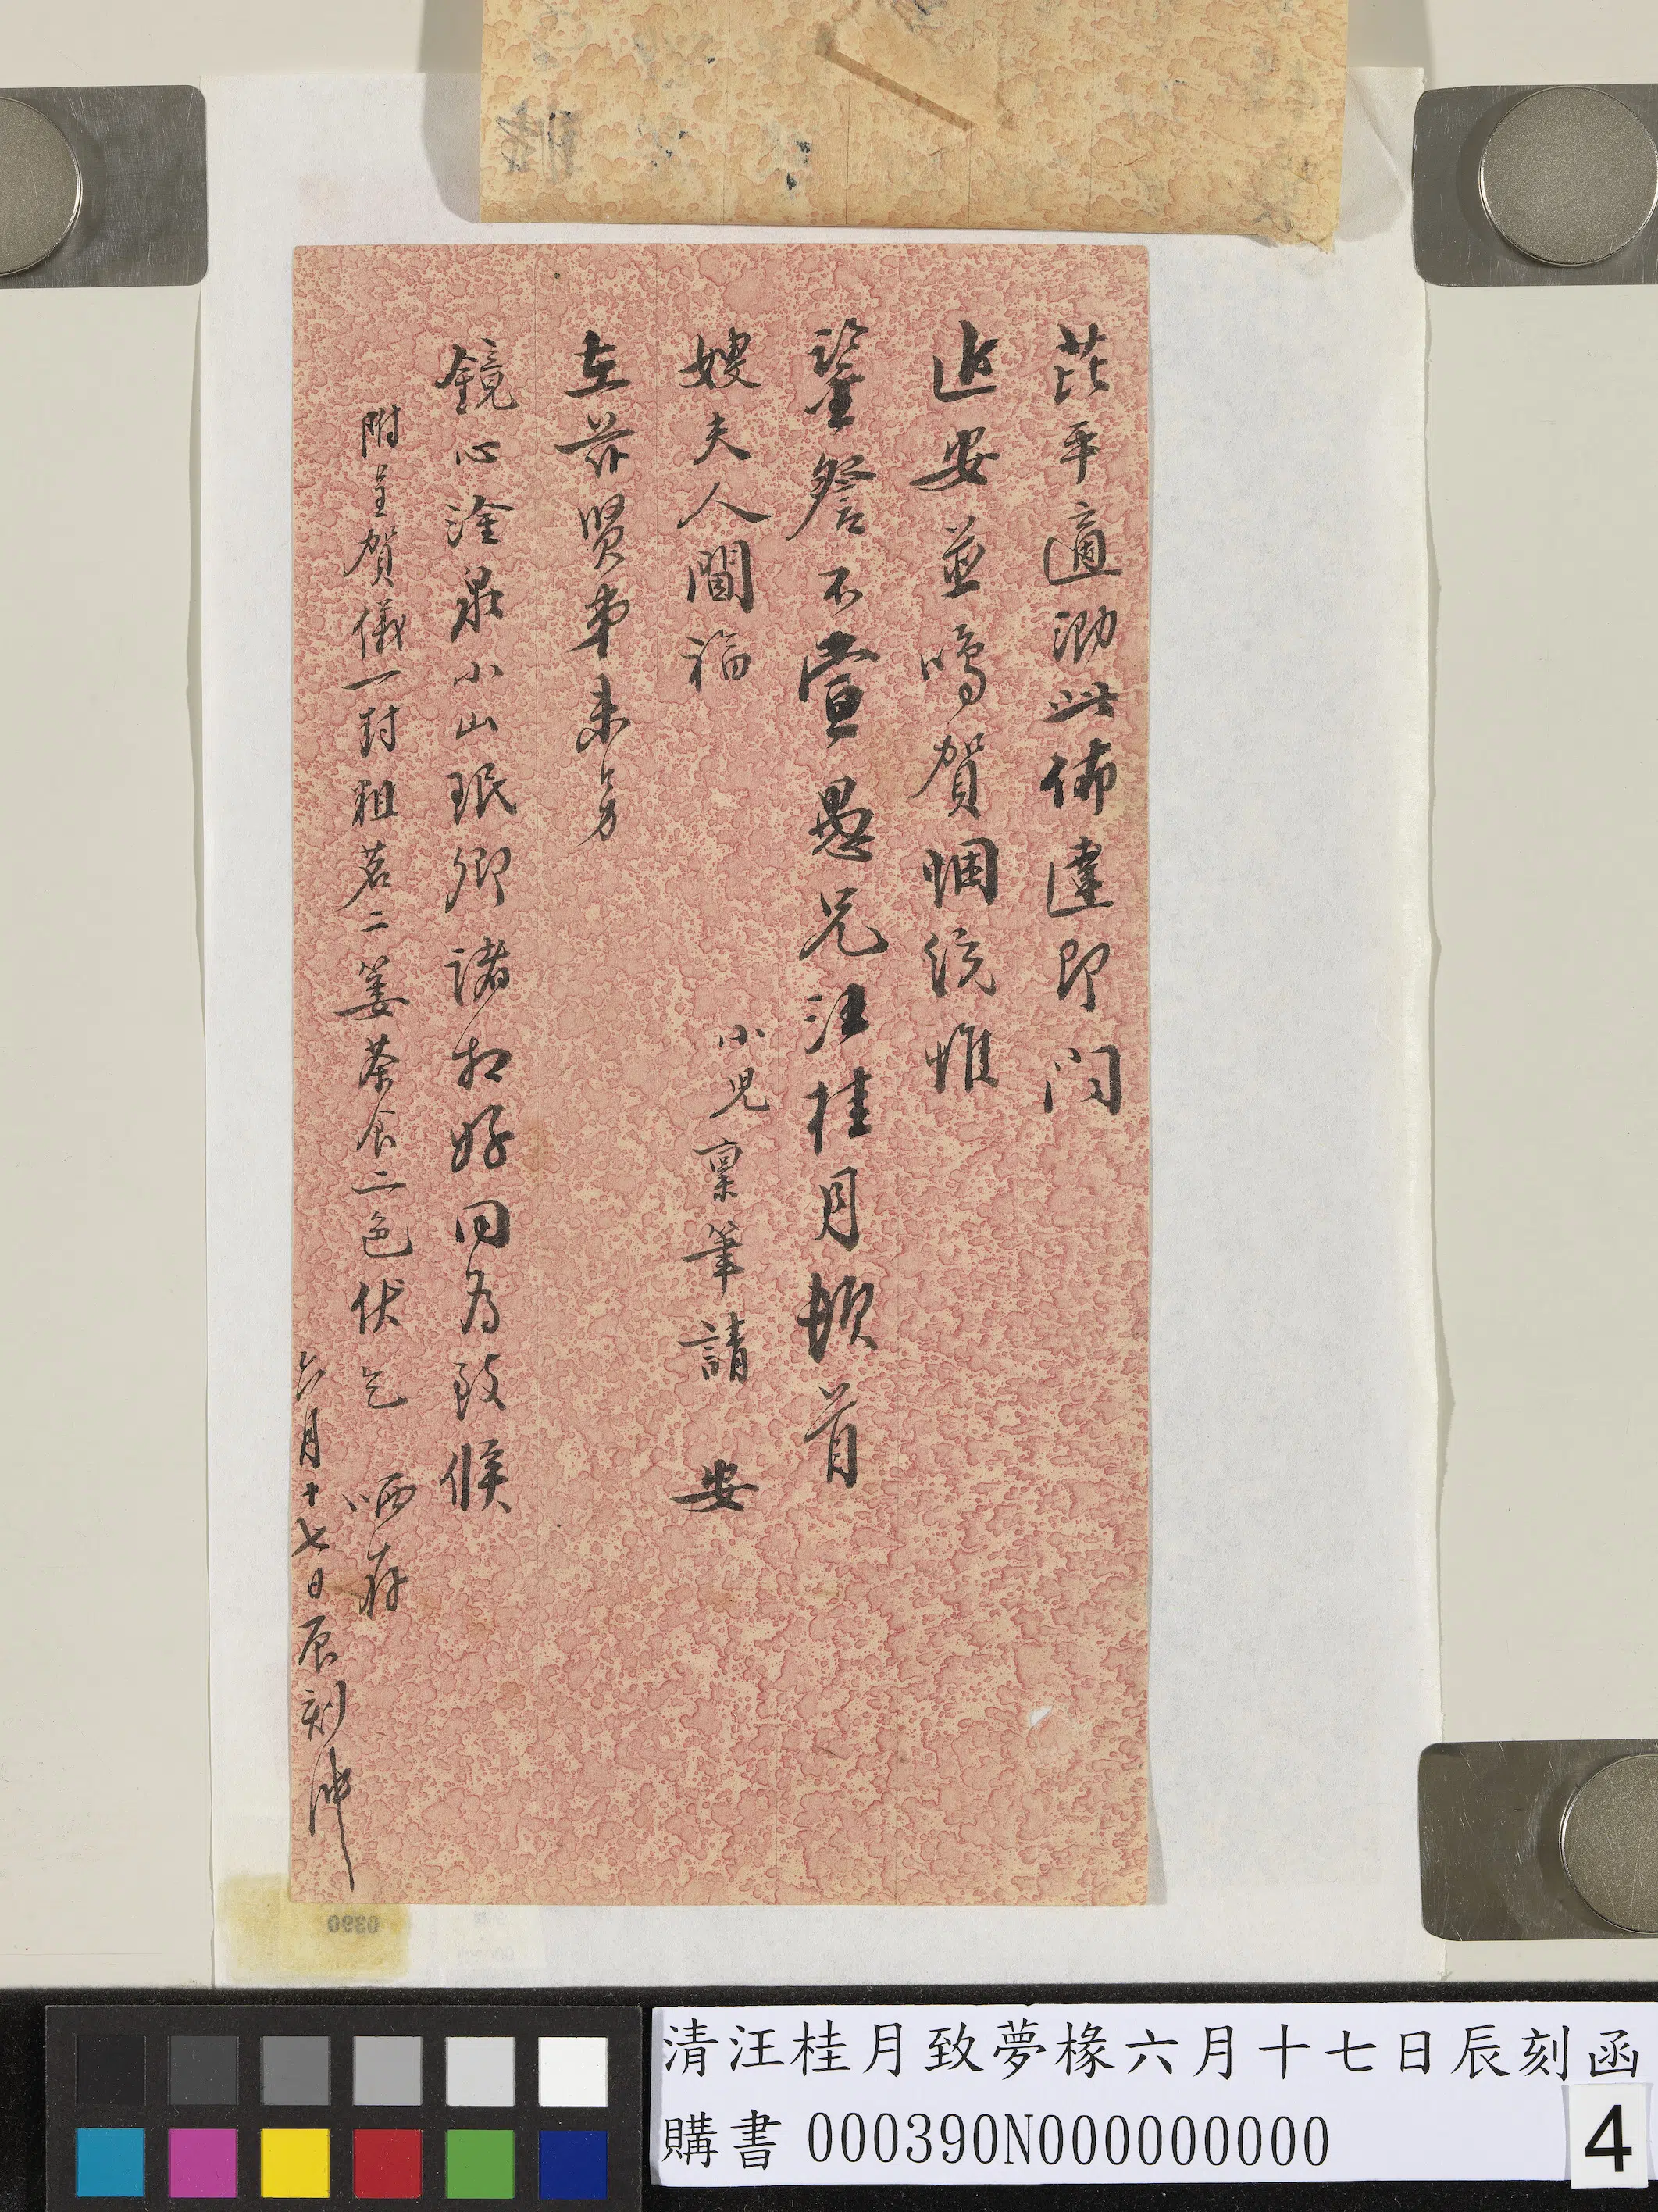 茈平適泐此佈達即問
近安並鳴賀悃統惟
鑒詧不宣愚兄汪桂月頓首
嫂夫人閫福 小兒稟筆請 安
在茲賢弟未另
鏡心淦泉小山珉卿諸相好同為致候
附呈賀儀一封粗茗二簍茶食二色伏乞 哂存
六月十七日辰刻沖
0390
清汪桂月致夢椽六月十七日辰刻函
購書 000390N000000000
4